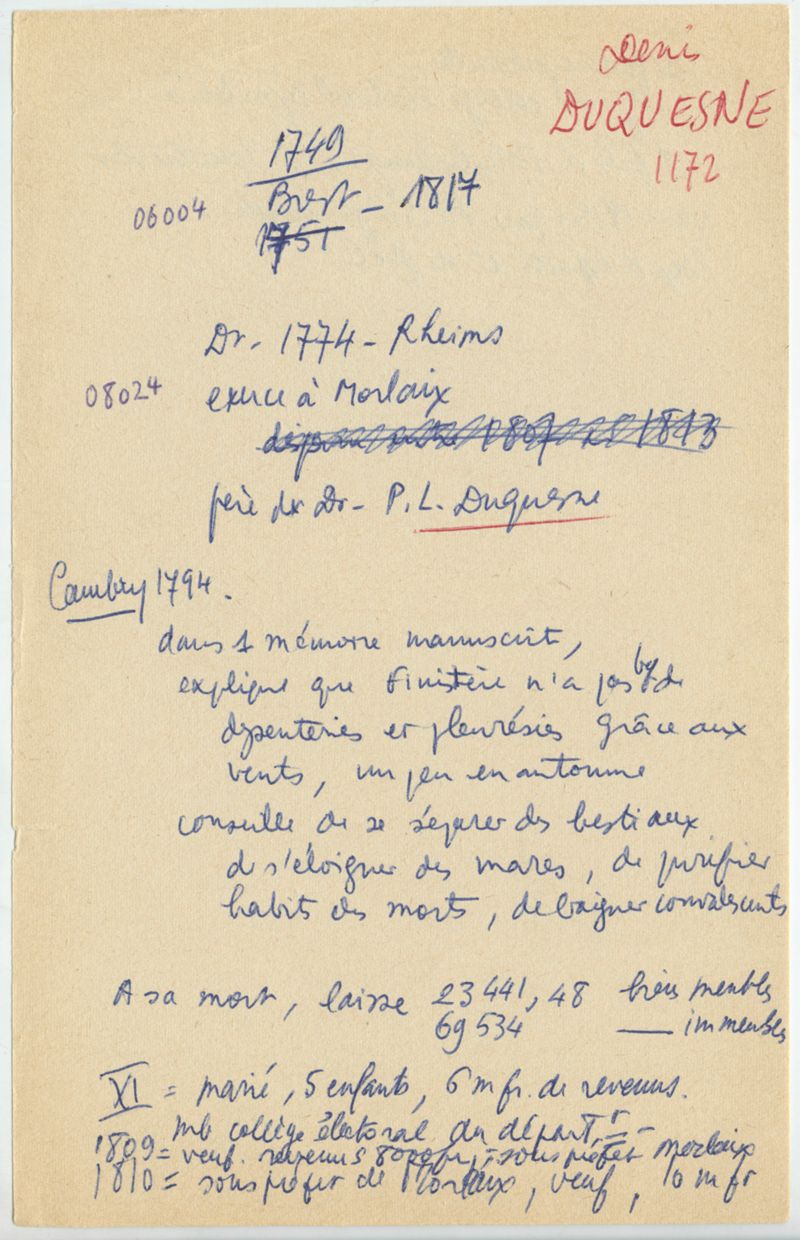 Denis
DUQUESNE
1172
1749
06004 Brest - 1817
1751
Dr. 1774 - Rheims
08024 exerce à Morlaix
père du Dr - P.L. Duquesne
Cambry 1794.
dans 1 mémoire manuscrit,
explique que Finistère n'a pas bp de
dysenteries et pleurésies grâce aux
vents, un peu en automne
conseille de se séparer des bestiaux
de s'éloigner des mares, de purifier
habits des morts, de baigner convalescents
A sa mort, laisse 23 441,48 biens meubles
69 534 —— immeubles
XI = marié, 5 enfants, 6 m fr. de revenus.
mb collège électoral du départ.
1809 = veuf. revenus 8000 fr, = sous préfet Morlaix
1810 = sous préfet de Morlaix, veuf, 10 m fr